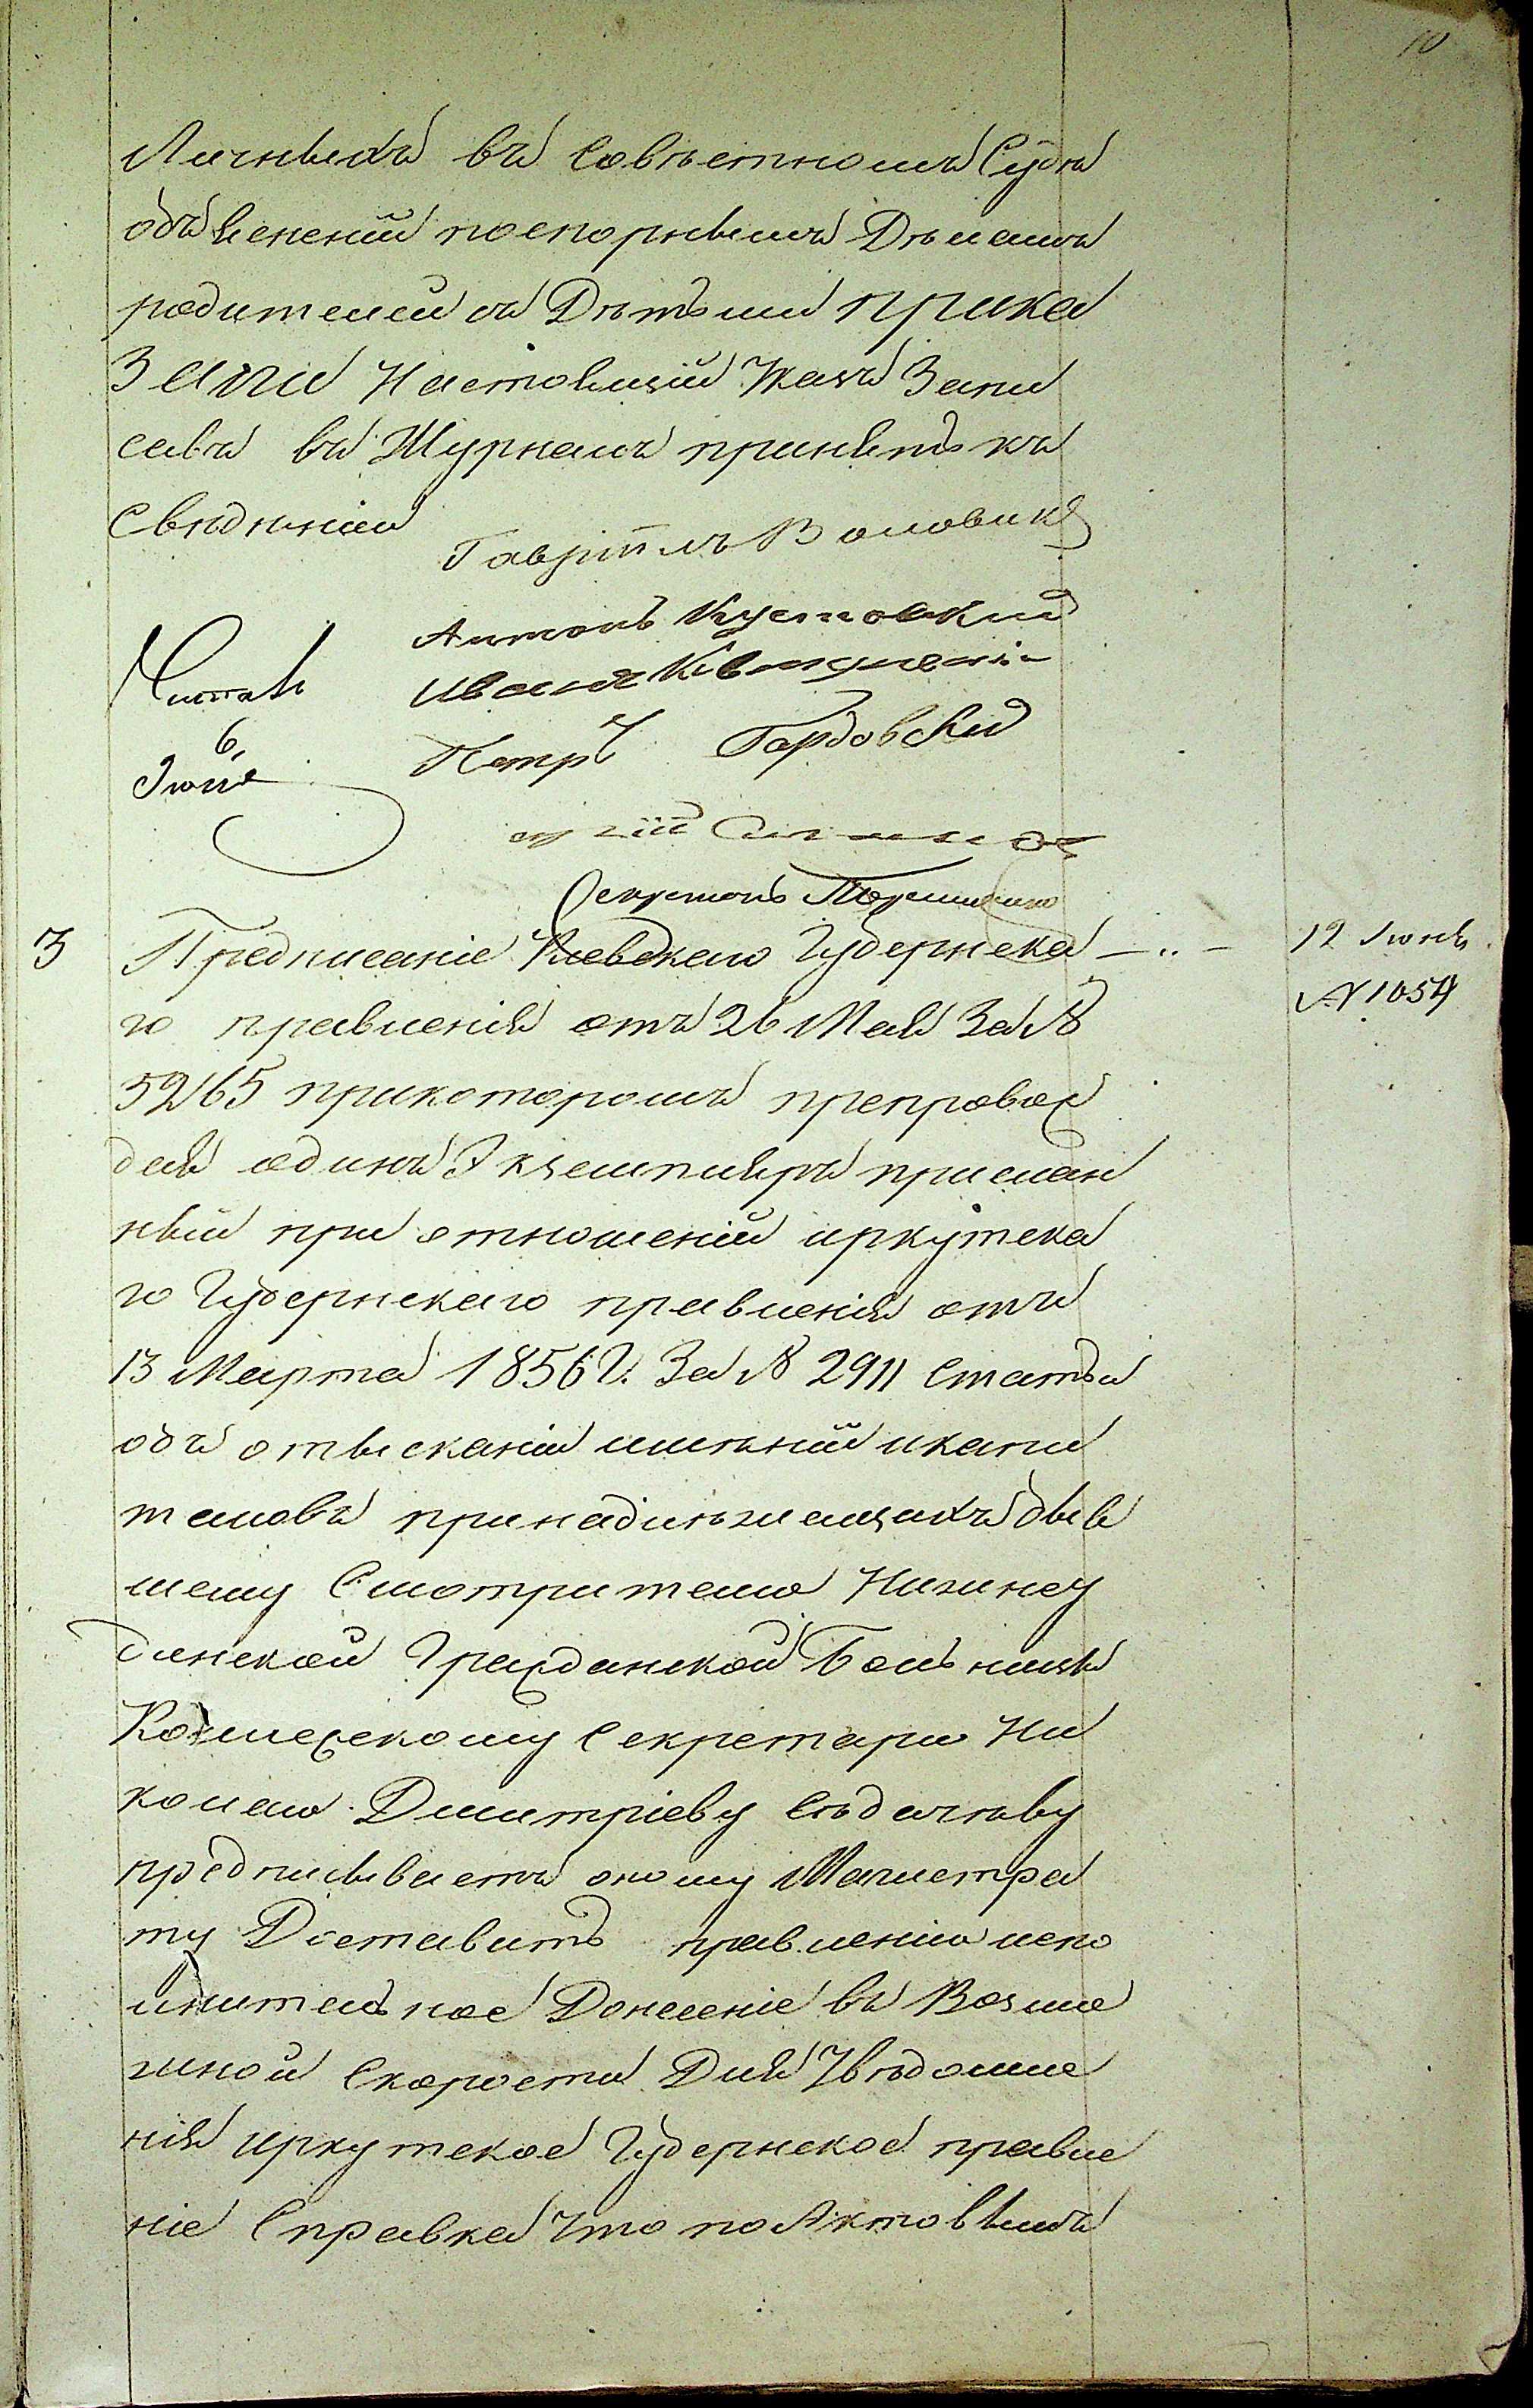 10
Личныхъ въ Совѣстномъ Судѣ
объясненій поспорнымъ Дѣламъ
родителей съ Дѣтьми прика
зали Настоящій Указъ Запи
савъ въ Журналъ принять къ
Свѣдѣнію
Гавріилъ Воловикъ
Антонъ Кустовский
Иванъ
Читалъ
Петръ Гардовский
6
Іюня
Секретарь
3 Предписаніе Киевскаго Губернска
12 Іюня
го правленія отъ 26 Мая За №
№ 1054
52165 прикоторомъ препровож
дая одинъ Экземпляръ прислан
ный при отношеній иркутска
го Губернскаго правленія отъ
13 Марта 1856 г. За № 2911 Статьи
объ отысканіи имѣній икапи
таловъ принадлѣжащихъ быв
шему Смотрителю Нижнеу
динской Гражданской Больницы
Коллежскому Секретарю Ни
колаю Дмитріеву Сѣдачѣву
предписываетъ оному Магистра
ту Доставить правленію испо
лнительное Донесеніе въ Возмо
жной Скорости Для Увѣдомле
нія иркутское Губернское правле
ніе Справка Что по Актовымъ